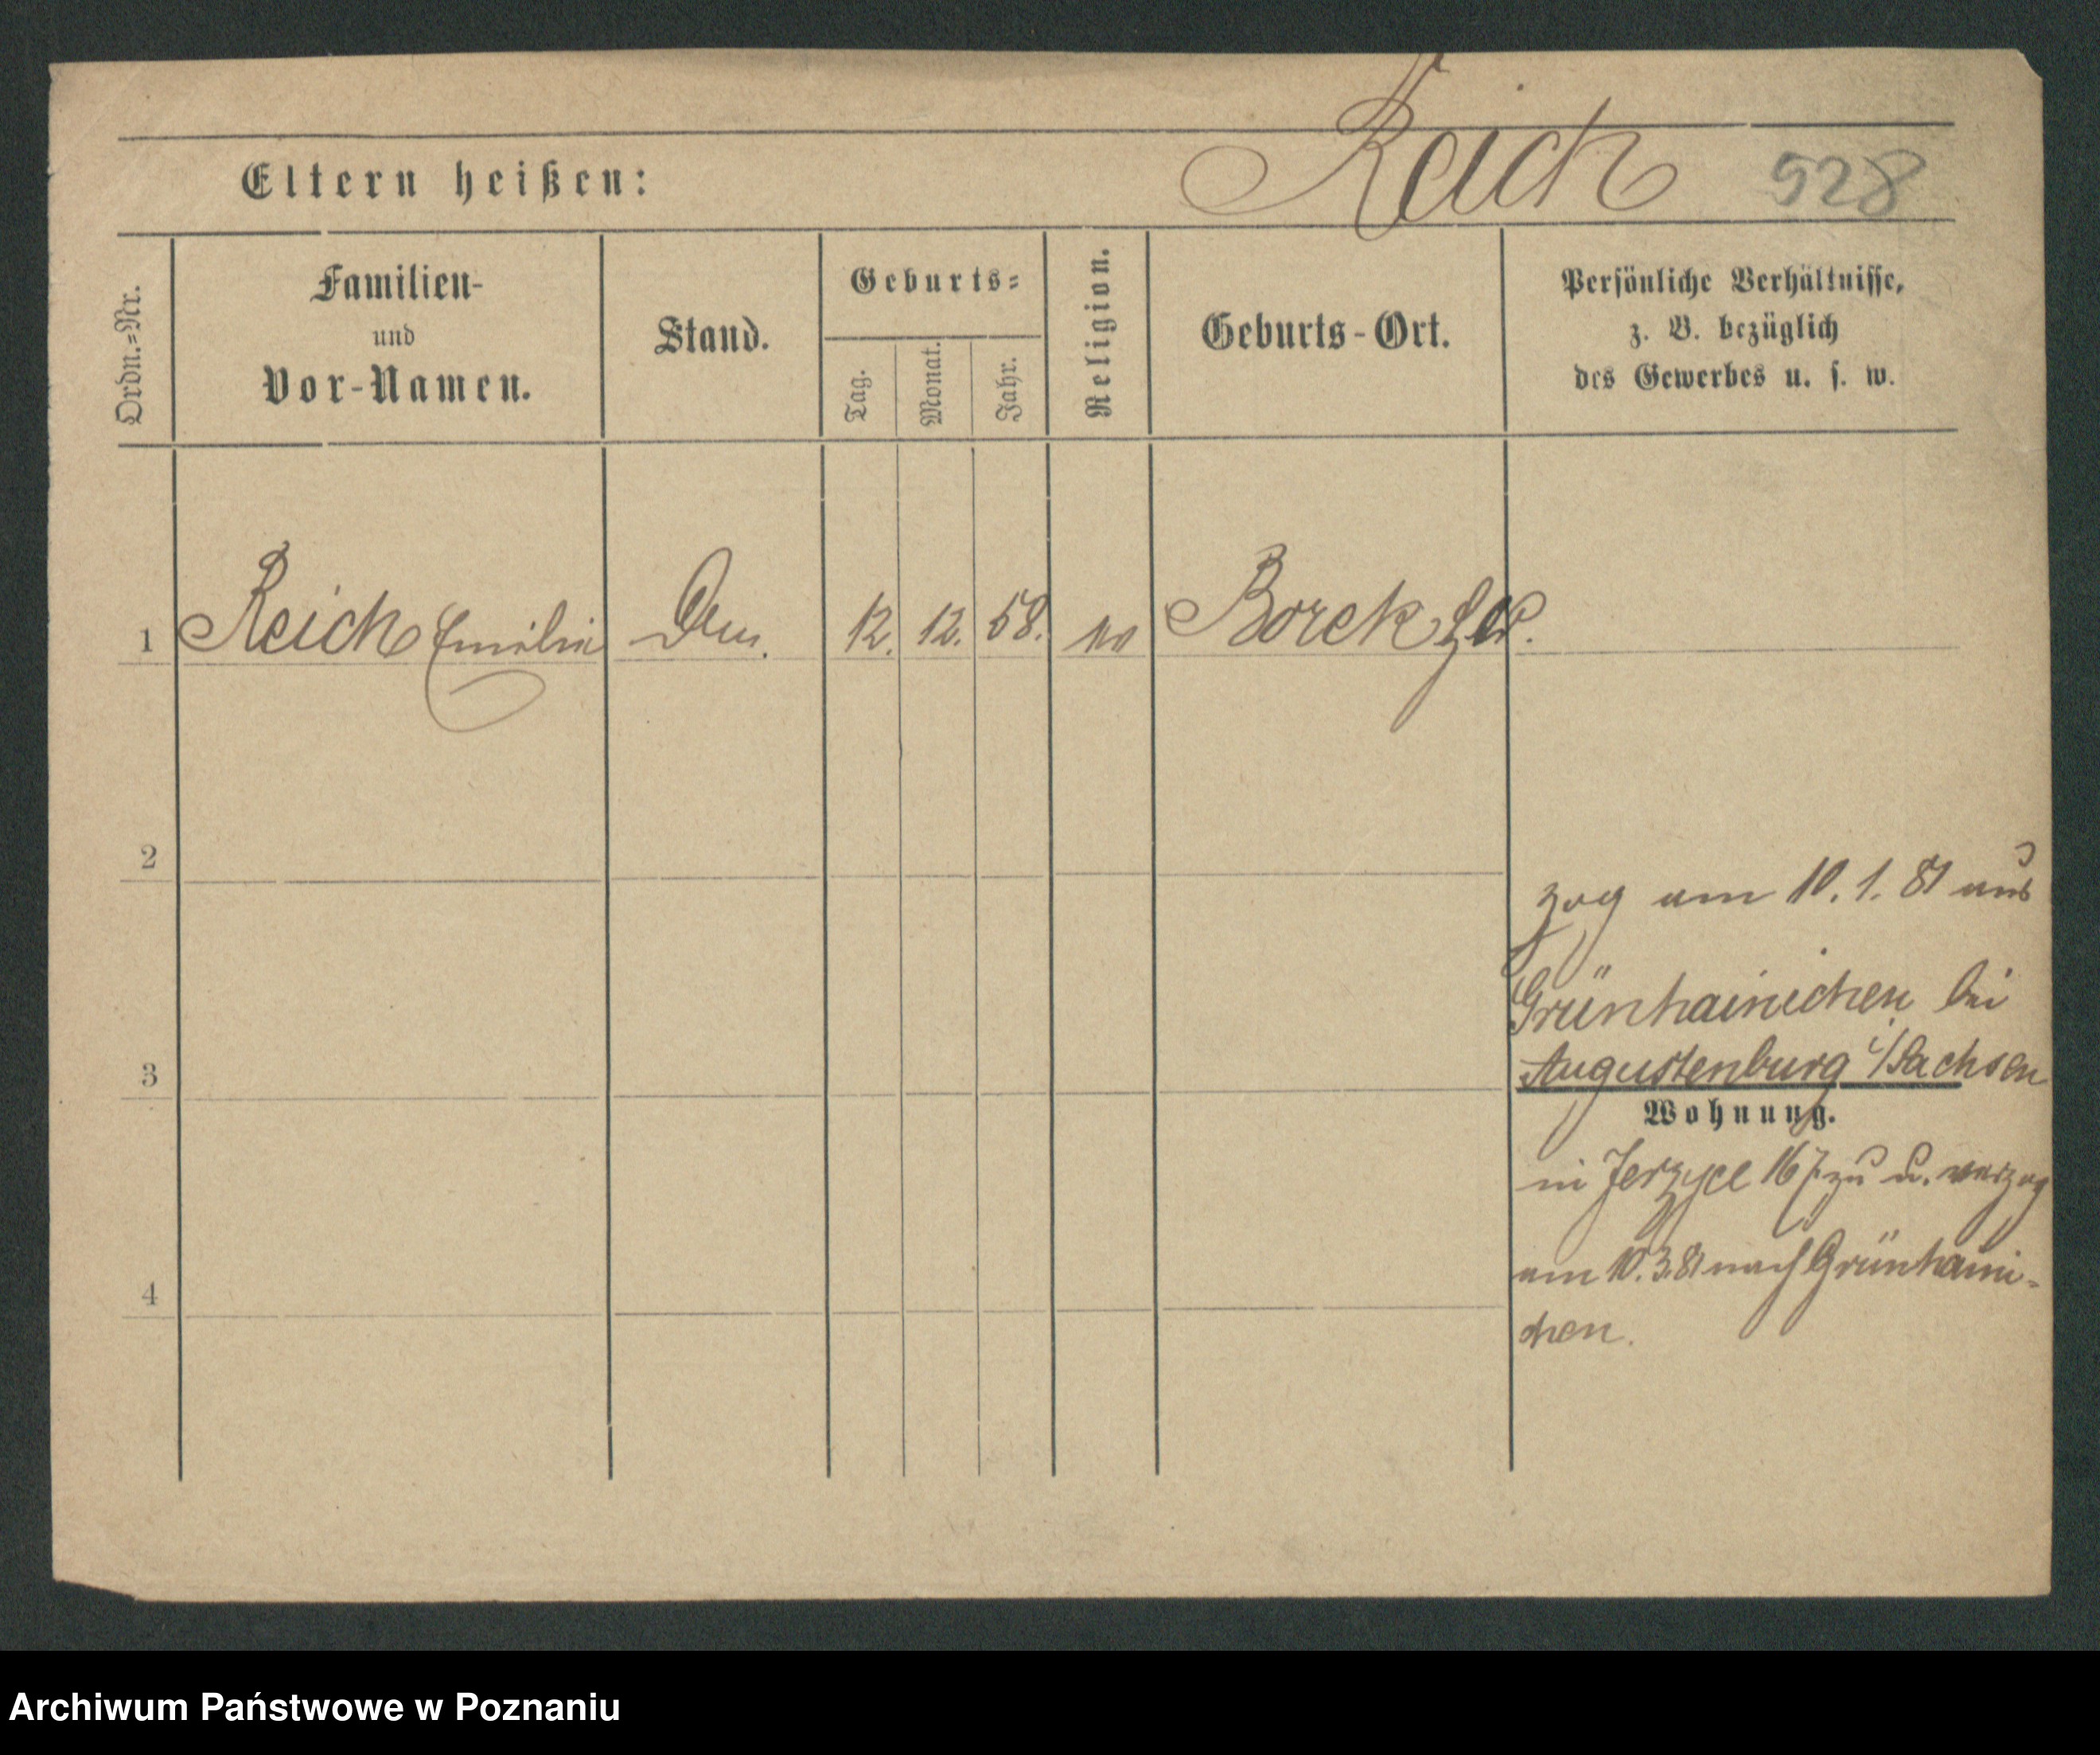 Reich 528
Eltern heißen:
Ordn.-Nr.
Familien-
und
Vor-Namen.
Stand.
Geburts-
Tag.
Monat.
Jahr.
Religion.
Geburts-Ort.
Persönliche Verhältnisse,
z. B. bezüglich
des Gewerbes u. s. w.
1 Reich Emilie 12. 12. 58. Borek
2
zog am 10. 1. 81 aus
Grünhainichen bei
3
Augustenburg i/Sachsen
Wohnung.
in Jerzyce 167 zu u. verzog
am 10.3.81 nach Grünhaini-
4
chen.
Archiwum Państwowe w Poznaniu